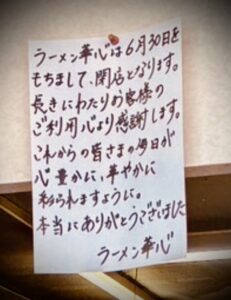 ラーメン華心は6月30日を
もちまして、閉店となります。
長きにわたりお客様の
ご利用心より感謝します。
これからの皆さまの毎日が
心豊かに、華やかに
彩られますように。
本当にありがとうございました
ラーメン華心